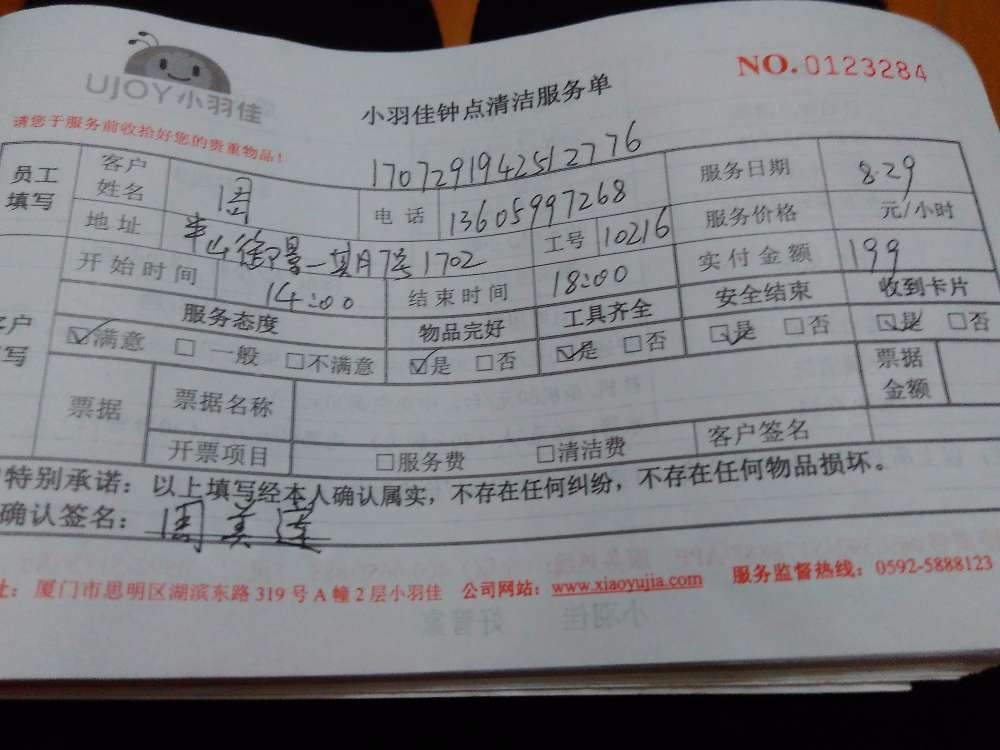 UJOY小羽佳
小羽佳钟点清洁服务单
NO.0123284
请您于服务前收拾好您的贵重物品!
1707291942512776
员工填写 客户姓名 周 电话 13605997268 服务日期 8.29
地址 半山御景一期7号1702 工号 10216 服务价格 元/小时
开始时间 14:00 结束时间 18:00 实付金额 199
服务态度 物品完好 工具齐全 安全结束 收到卡片
☑满意 □一般 □不满意 ☑是 □否 ☑是 □否 ☑是 □否 ☑是 □否
票据 票据名称 票据金额
开票项目 □服务费 □清洁费 客户签名
特别承诺:以上填写经本人确认属实,不存在任何纠纷,不存在任何物品损坏。
确认签名:周美莲
厦门市思明区湖滨东路319号A幢2层小羽佳 公司网站:www.xiaoyujia.com 服务监督热线:0592-5888123